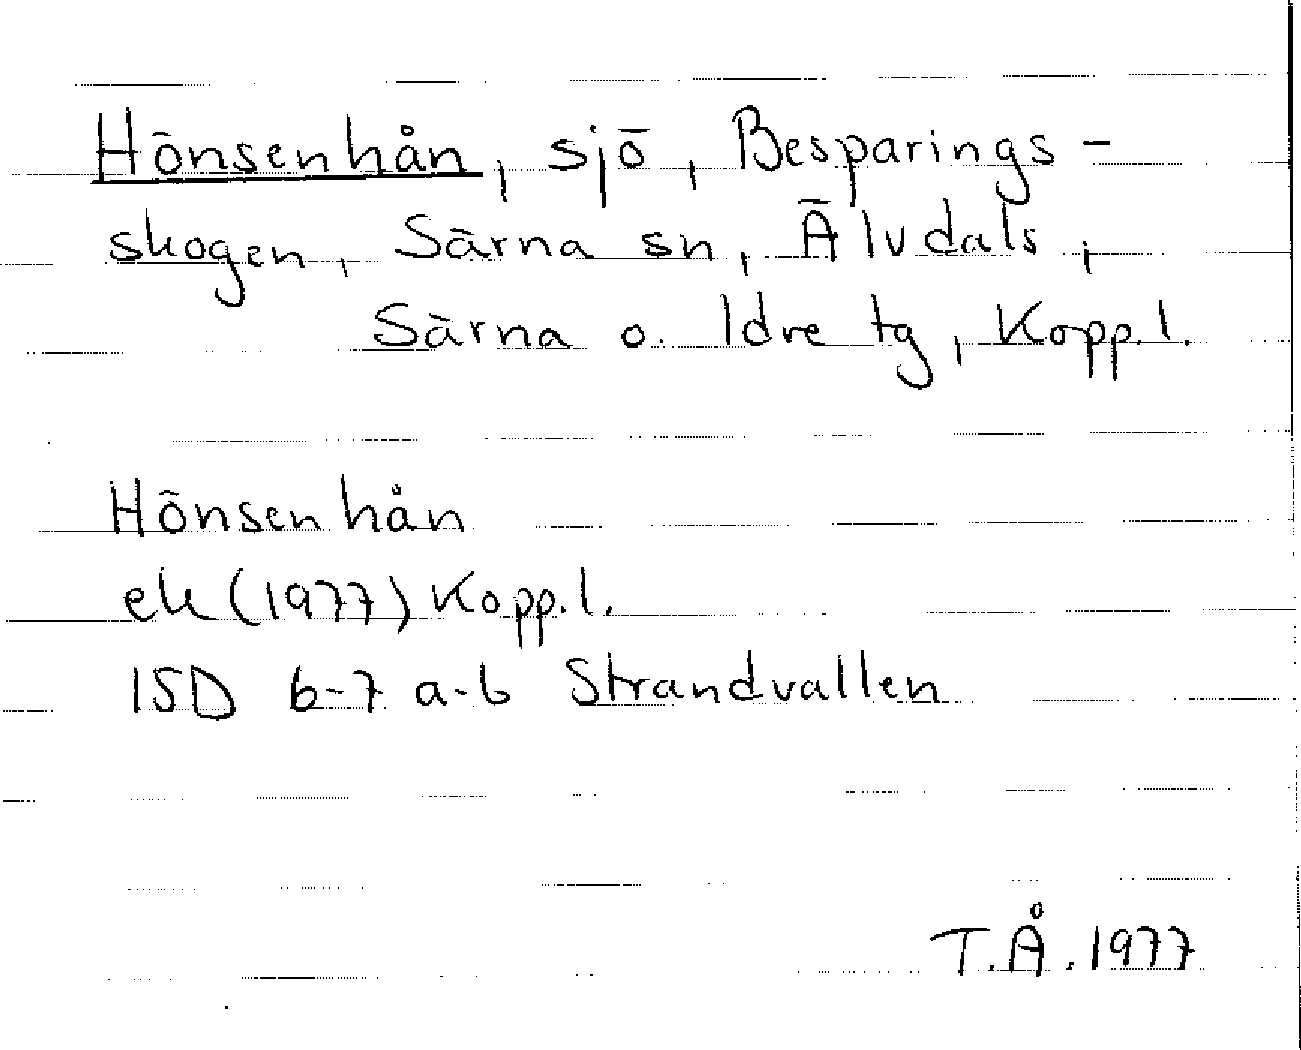 Hönsenhån, sjö, Besparings-
skogen, Särna sn, Älvdals,
Särna o. Idre tg, Kopp.l.
Hönsenhån
ek (1977) Kopp.l.
15D 6-7 a-b Strandvallen
T.Å. 1977